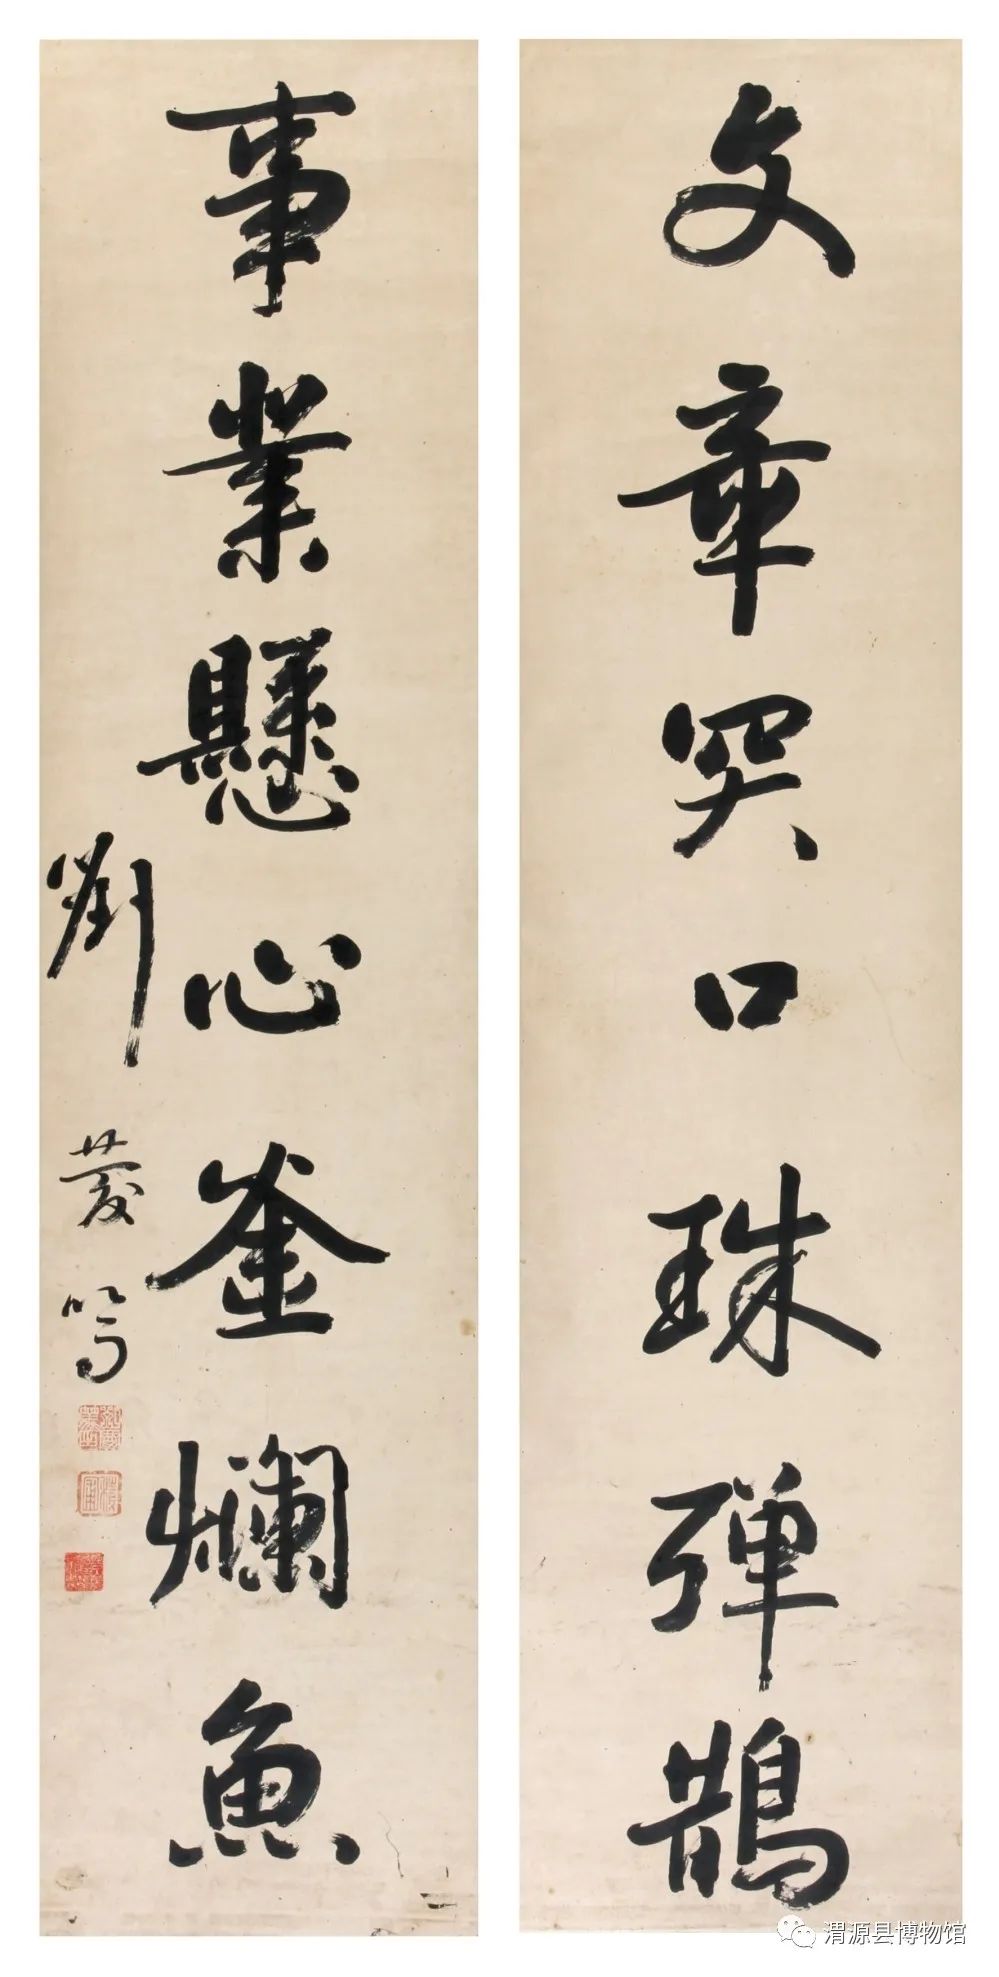 文章哭口珠弹鵲
事業懸心釜爛魚
劉慶篤
渭源县博物馆